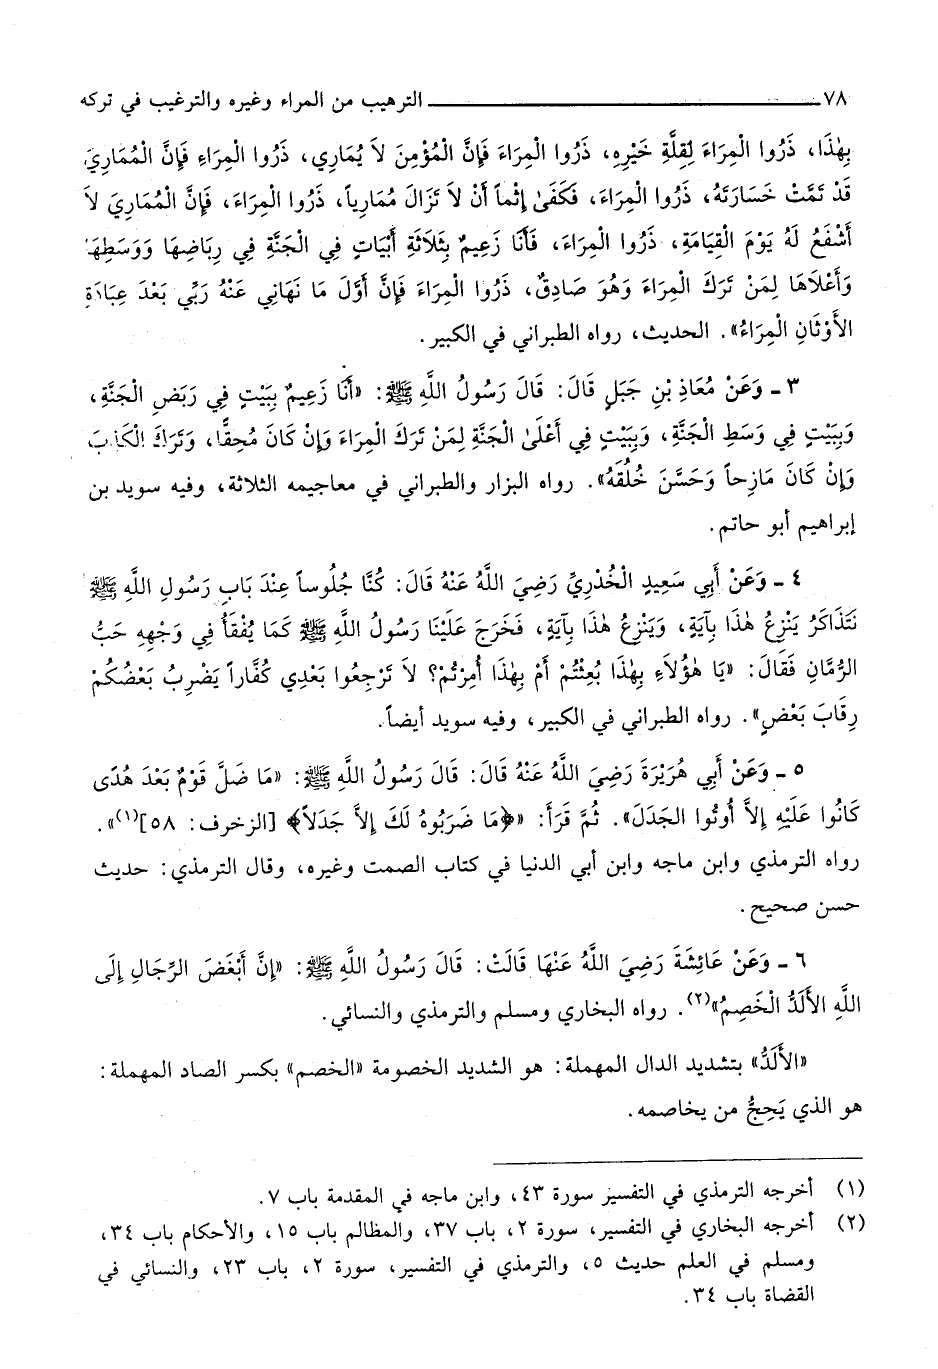 ٧٨ ــــــ الترهيب من المراء وغيره والترغيب في تركه
بِهٰذَا، ذَرُوا الْمِرَاءَ لِقِلَّةِ خَيْرِهِ، ذَرُوا الْمِرَاءَ فَإِنَّ الْمُؤْمِنَ لاَ يُمَارِي، ذَرُوا الْمِرَاءِ فَإِنَّ الْمُمَارِيَ
قَدْ تَمَّتْ خَسَارَتَهُ، ذَرُوا الْمِرَاءَ، فَكَفَىٰ إِثْماً أَنْ لاَ تَزَالَ مُمَارِياً، ذَرُوا الْمِرَاءَ، فَإِنَّ الْمُمَارِيَ لاَ
أَشْفَعُ لَهُ يَوْمَ الْقِيَامَةِ، ذَرُوا الْمِرَاءَ، فَأَنَا زَعِيمٌ بِثَلاَثَةِ أَبْيَاتٍ فِي الْجَنَّةِ فِي رِبَاضِهَا وَوَسَطِهَا
وَأَعْلاَهَا لِمَنْ تَرَكَ الْمِرَاءَ وَهُوَ صَادِقٌ، ذَرُوا الْمِرَاءَ فَإِنَّ أَوَّلَ مَا نَهَانِي عَنْهُ رَبِّي بَعْدَ عِبَادَةِ
الأَوْثَانِ الْمِرَاءُ». الحديث، رواه الطبراني في الكبير.
٣ ـ وَعَنْ مُعَاذِ بْنِ جَبَلٍ قَالَ: قَالَ رَسُولُ اللَّهِ ﷺ: «أَنَا زَعِيمٌ بِبَيْتٍ فِي رَبَضِ الْجَنَّةِ،
وَبِبَيْتٍ فِي وَسَطِ الْجَنَّةِ، وَبِبَيْتٍ فِي أَعْلَىٰ الْجَنَّةِ لِمَنْ تَرَكَ الْمِرَاءَ وَإِنْ كَانَ مُحِقًّا، وَتَرَكَ الْكَذِبَ
وَإِنْ كَانَ مَازِحاً وَحَسَّنَ خُلُقَهُ». رواه البزار والطبراني في معاجيمه الثلاثة، وفيه سويد بن
إبراهيم أبو حاتم.
٤ ـ وَعَنْ أَبِي سَعِيدٍ الْخُدْرِيِّ رَضِيَ اللَّهُ عَنْهُ قَالَ: كُنَّا جُلُوساً عِنْدَ بَابِ رَسُولِ اللَّهِ ﷺ
نَتَذَاكَرُ يَنْزِعُ هٰذَا بِآيَةٍ، وَيَنْزِعُ هٰذَا بِآيَةٍ، فَخَرَجَ عَلَيْنَا رَسُولُ اللَّهِ ﷺ كَمَا يُفْقَأُ فِي وَجْهِهِ حَبُّ
الرُّمَّانِ فَقَالَ: «يَا هٰؤُلاَءِ بِهٰذَا بُعِثْتُمْ أَمْ بِهٰذَا أُمِرْتُمْ؟ لاَ تَرْجِعُوا بَعْدِي كُفَّاراً يَضْرِبُ بَعْضُكُمْ
رِقَابَ بَعْضٍ». رواه الطبراني في الكبير، وفيه سويد أيضاً.
٥ ـ وَعَنْ أَبِي هُرَيْرَةَ رَضِيَ اللَّهُ عَنْهُ قَالَ: قَالَ رَسُولُ اللَّهِ ﷺ: «مَا ضَلَّ قَوْمٌ بَعْدَ هُدًى
كَانُوا عَلَيْهِ إِلاَّ أُوتُوا الجَدَلَ». ثُمَّ قَرَأَ: «﴿مَا ضَرَبُوهُ لَكَ إِلاَّ جَدَلاً﴾ [الزخرف: ٥٨]⁽¹⁾».
رواه الترمذي وابن ماجه وابن أبي الدنيا في كتاب الصمت وغيره، وقال الترمذي: حديث
حسن صحيح.
٦ ـ وَعَنْ عَائِشَةَ رَضِيَ اللَّهُ عَنْهَا قَالَتْ: قَالَ رَسُولُ اللَّهِ ﷺ: «إِنَّ أَبْغَضَ الرِّجَالِ إِلَى
اللَّهِ الأَلَدُّ الْخَصِمُ»(٢). رواه البخاري ومسلم والترمذي والنسائي.
«الأَلَدُّ» بتشديد الدال المهملة: هو الشديد الخصومة «الخصم» بكسر الصاد المهملة:
هو الذي يَحِجُّ من يخاصمه.
(١) أخرجه الترمذي في التفسير سورة ٤٣، وابن ماجه في المقدمة باب ٧.
(٢) أخرجه البخاري في التفسير، سورة ٢، باب ٣٧، والمظالم باب ١٥، والأحكام باب ٣٤،
ومسلم في العلم حديث ٥، والترمذي في التفسير، سورة ٢، باب ٢٣، والنسائي في
القضاة باب ٣٤.